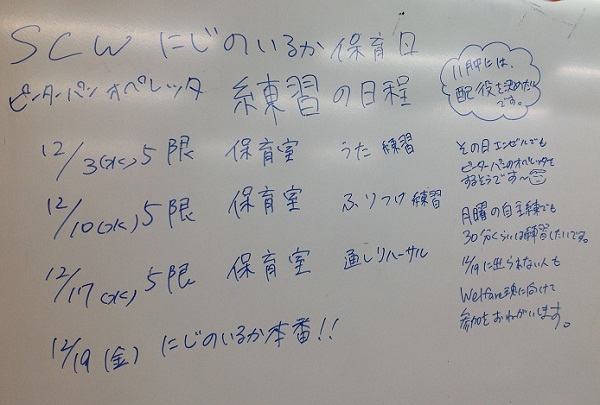 SCW にじのいるか保育日
ピーターパン オペレッタ 練習の日程
12/3(水) 5限 保育室 うた練習
12/10(水) 5限 保育室 ふりつけ練習
12/17(水) 5限 保育室 通しリハーサル
12/19(金) にじのいるか本番!!
11月中には、
配役を決めたい
です。
その日エンゼルでも
ピーターパンのオペレッタを
するそうです〜
月曜の自主練でも
30分くらいは練習したいです。
12/19に出られない人も
Welfare に向けて
参加をおねがいします。